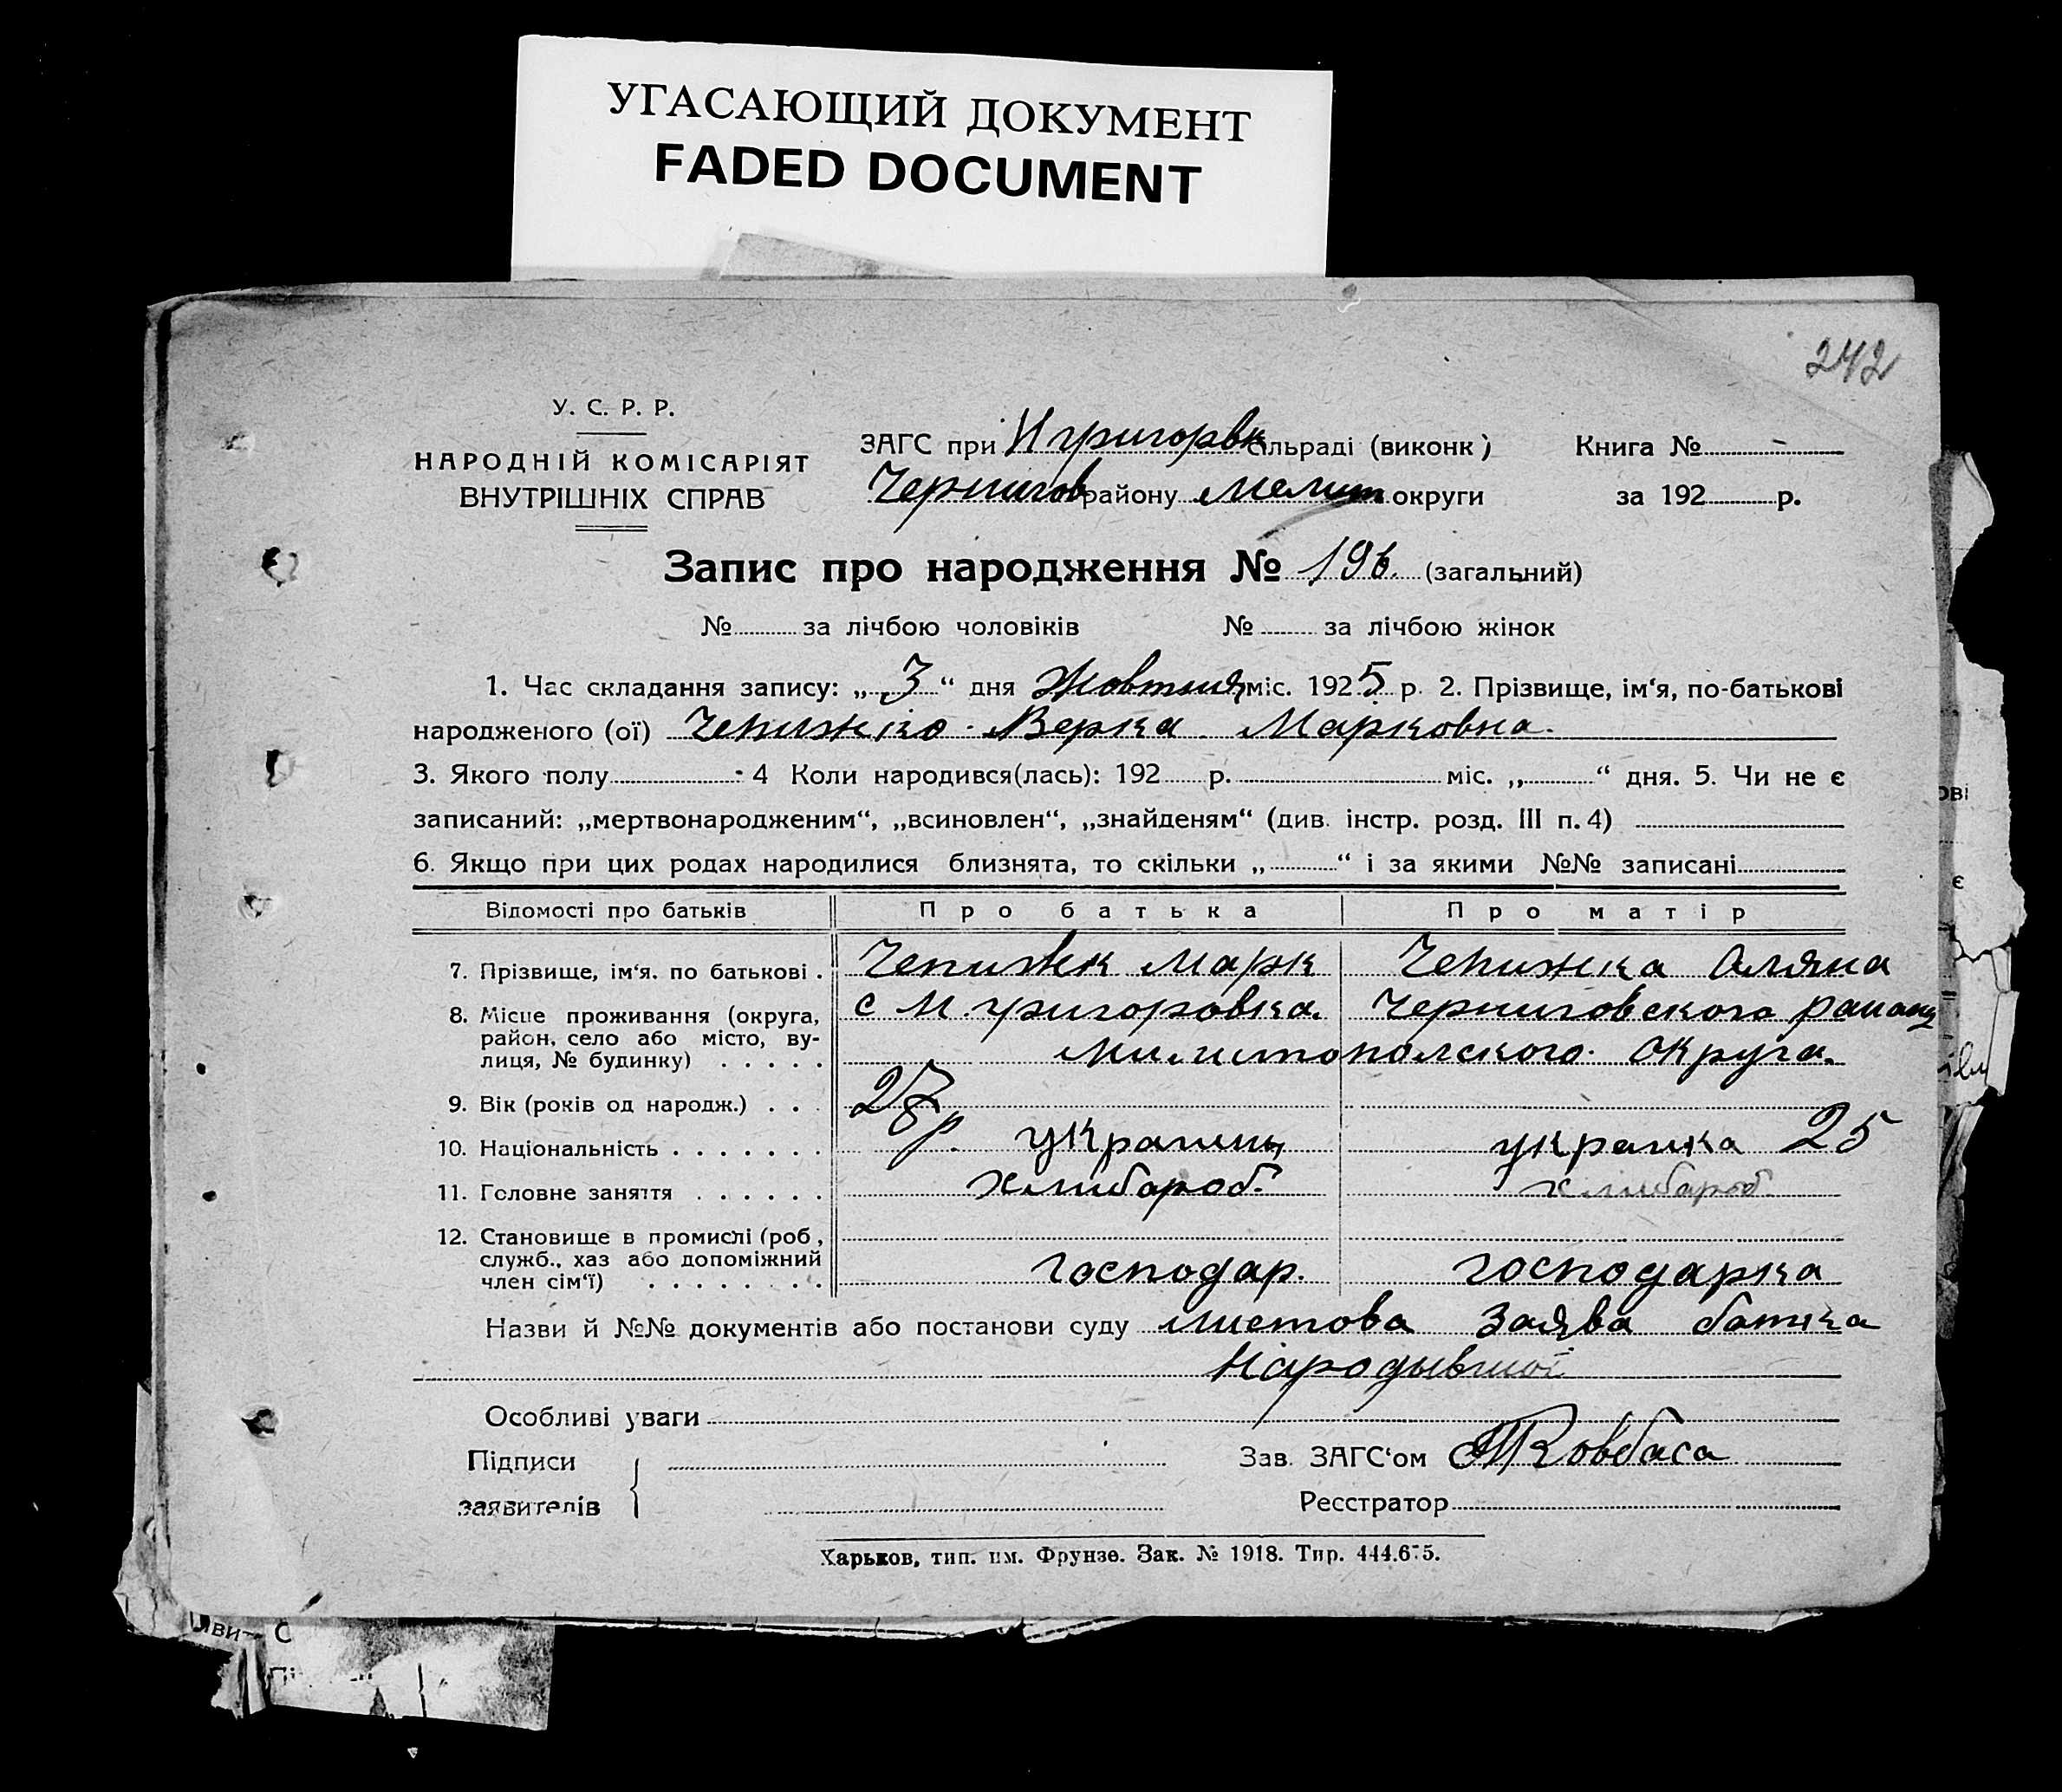 УГАСАЮЩИЙ ДОКУМЕНТ
FADED DOCUMENT
242
У. С. Р. Р.
НАРОДНІЙ КОМІСАРІЯТ
ВНУТРІШНІХ СПРАВ
ЗАГС при Нгригорвк сільраді (виконк) Книга №
Чернигов району Мелит округи за 192 р.
Запис про народження № 196. (загальний)
№ за лічбою чоловіків № за лічбою жінок
1. Час складання запису: „ 3 “ дня Жовтня міс. 1925 р. 2. Прізвище, ім‘я, по-батькові
народженого (ої) Чепижко Верка Марковна.
3. Якого полу 4 Коли народився(лась): 192 р. міс. „ “ дня. 5. Чи не є
записаний: „мертвонародженим“, „всиновлен“, „знайденям“ (див. інстр. розд. III п. 4)
6. Якщо при цих родах народилися близнята, то скільки „ “ і за якими №№ записані
Відомості про батьків Про батька Про матір
7. Прізвище, ім‘я. по батькові . Чепижк Марк Чепижка Оляна
8. Місце проживання (округа, с Н.григоровка. Черниговского району
район, село або місто, ву-
лиця, № будинку) . . . . . Милитополского округа.
9. Вік (років од народж.) . . . 27р.
10. Національність . . . . . . . украинц украинка 25
11. Головне заняття . . . . . . хлибароб. хлибароб.
12. Становище в промислі (роб,
служб., хаз або допоміжний
член сім‘ї) . . . . . . . . господар. господарка
Назви й №№ документів або постанови суду листова заява батька
Народывшої
Особливі уваги
Підписи
заявителів
Зав. ЗАГС‘ом Ковбаса
Реєстратор
Харьков, тип. им. Фрунзе. Зак. № 1918. Тир. 444.675.